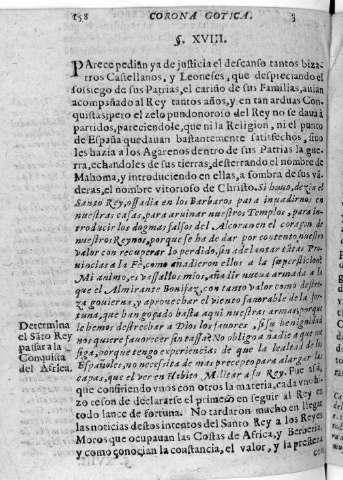 158 CORONA GOTICA.
§. XVIII.
PArece pedian ya de justicia el descanso tantos biza-
rros Castellanos, y Leoneses, que despreciando el
sossiego de sus Patrias, el cariño de sus Familias, auian
acompañado al Rey tantos años, y en tan arduas Con-
quistas; pero el zelo pundonoroso del Rey no se dava à
partidos, pareciendole, que ni la Religion, ni el punto
de España quedauan bastantemente satisfechos, sino
les hazia a los Agarenos dentro de sus Patrias la gue-
rra, echandoles de sus tierras, desterrando el nombre de
Mahoma, y introduciendo en ellas, a sombra de sus vã-
deras, el nombre vitorioso de Christo. Si huuo, dezia el
Santo Rey, ossadia en los Barbaros para inuadirnos en
nuestras casas, para arruinar nuestros Templos, para in-
troducir los dogmas falsos del Alcoran en el coraçon de
nuestros Reynos, porque se ha de dar por contento nuestro
valor con recuperar lo perdido, sin adelantar tãtas Pro-
uincias a la Fè, como añadieron ellos a la supersticion?
Mi animo, es vassallos mios, añadir nueva armada a la
que el Almirante Bonifaz, con tanto valor como destre-
za gouierna, y aprouechar el viento fauorable de la for-
tuna, que han gozado hasta aqui nuestras armas, porque
le hemos desechar a Dios los fauores, si su benignidad
nos quiere fauorecer sin tassa? No obligo a nadie a que me
siga, porque tengo experiencias de que la lealtad de los
Españoles, no necessita de mas precepto para alargar las
capas, que el ver en Habito Militar a su Rey. Fue assi,
que confiriendo vnos con otros la materia, cada vno hi-
zo teson de declararse el primero en seguir al Rey en
todo lance de fortuna. No tardaron mucho en llegar
las noticias destos intentos del Santo Rey a los Reyes
Moros que ocupauan las Costas de Africa, y Berberia,
y como conocian la constancia, el valor, y la presteza
con
Determina
el Sãto Rey
passar a la
Conquista
del Africa.